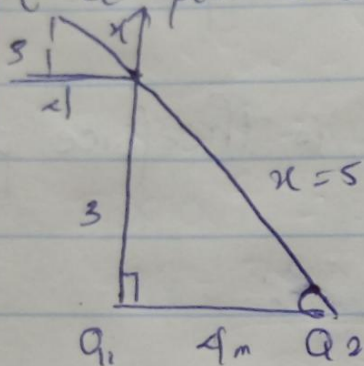 3
x
4
x = 5
3
Q₁ 4m Q2